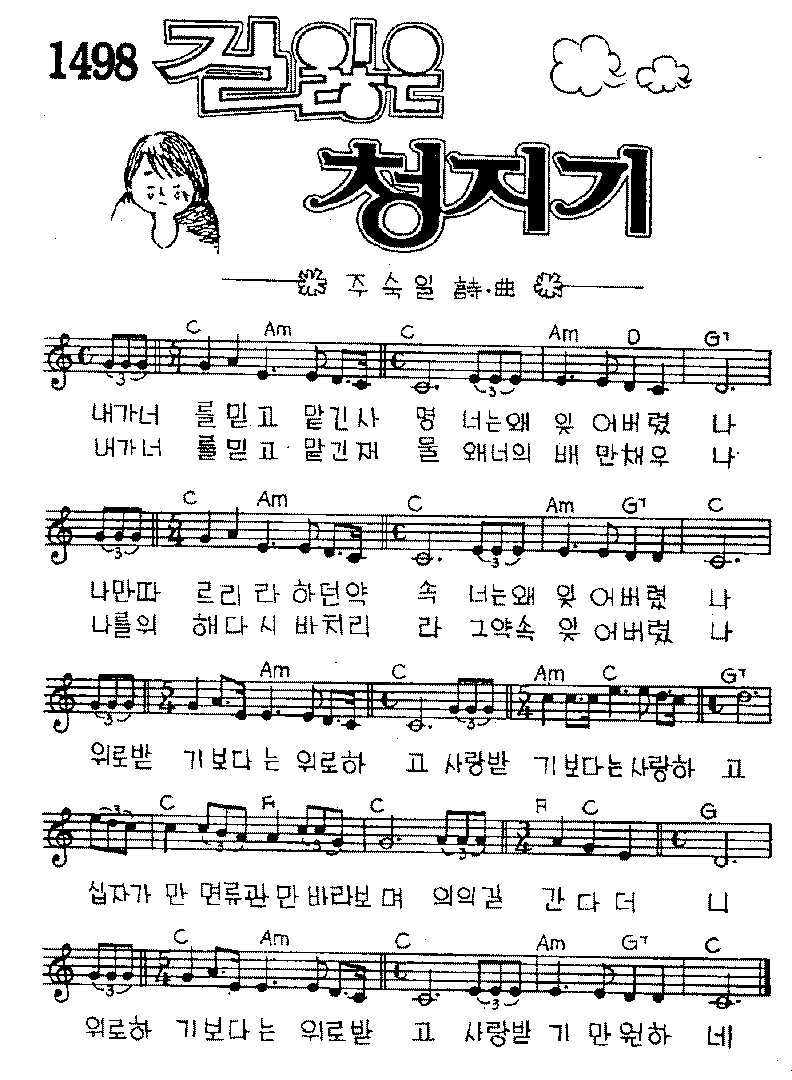 1498 길잃은
청지기
주숙일 詩·曲
C Am C Am D G7
3 3
내가너 를믿고 맡긴사 명 너는왜 잊 어버렸 나
내가너 를믿고 맡긴재 물 왜너의 배 만채우 나
C Am C Am G7 C
5/4 3 3
나만따 르리라 하던약 속 너는왜 잊 어버렸 나
나를위 해다시 바쳐리 라 그약속 잊 어버렸 나
Am C Am C G7
3 5/4 3 5/4
위로받 기보다는 위로하 고 사랑받 기보다는사랑하 고
3 C F C F C G
3 3 3 3/4
십자가 만 면류관만 바라보며 의의길 간다더 니
C Am C Am G7 C
3 5/4 3
위로하 기보다는 위로받 고 사랑받 기 만원하 네